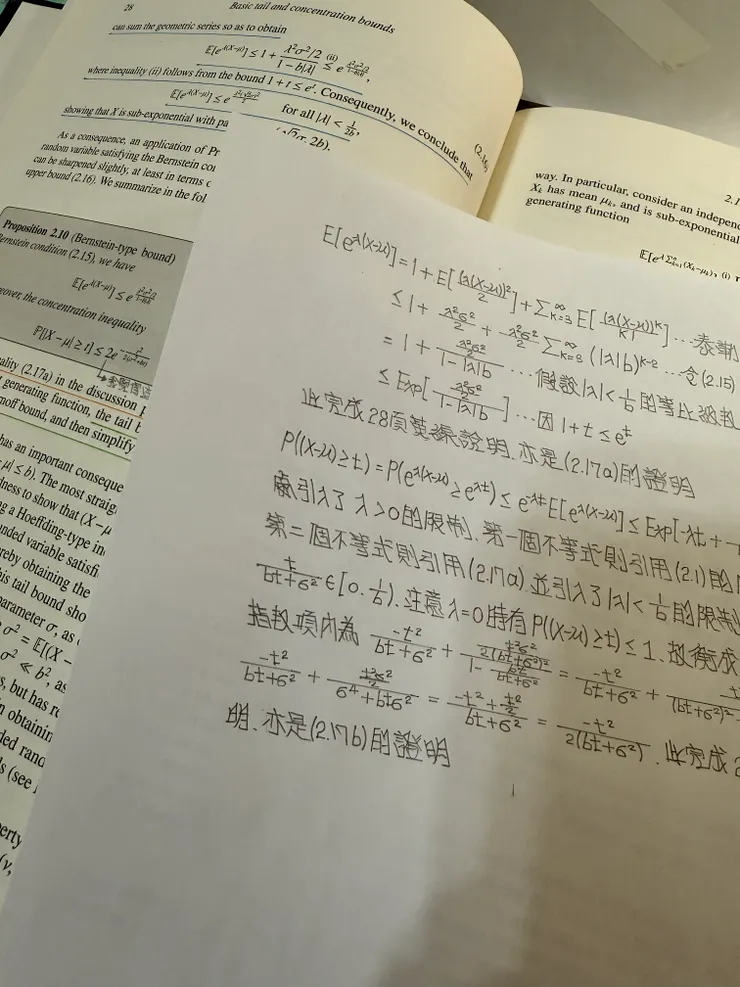 28
Basic tail and concentration bounds
can sum the geometric series so as to obtain
E[e^{λ(X−μ)}] ≤ 1 + \frac{λ²σ²/2}{1 − b|λ|} (ii) ≤ e^{\frac{λ²σ²/2}{1−b|λ|}},
where inequality (ii) follows from the bound 1 + t ≤ e^t. Consequently, we conclude that
for all |λ| < \frac{1}{2b},
(2.16)
showing that X is sub-exponential with pa
(√2σ, 2b).
As a consequence, an application of Pr
random variable satisfying the Bernstein co
can be sharpened slightly, at least in terms
upper bound (2.16). We summarize in the fol
Proposition 2.10 (Bernstein-type bound)
Bernstein condition (2.15), we have
E[e^{λ(X−μ)}] ≤ e^{\frac{λ²σ²/2}{1−b|λ|}}
eover, the concentration inequality
P[|X − μ| ≥ t] ≤ 2e^{−\frac{t²}{2(σ²+bt)}}
ality (2.17a) in the discussion p
generating function, the tail b
noff bound, and then simplify
has an important conseque
− μ| ≤ b). The most straig
dness to show that (X − μ
g a Hoeffding-type in
unded variable satisfi
reby obtaining the
his tail bound sho
parameter σ, as
σ² = E[(X −
σ² ≪ b², as
, but has re
n obtainin
ded rand
s (see
perty
(ν,
2.1
way. In particular, consider an independ
X_k has mean μ_k, and is sub-exponential
generating function
E[e^{λ Σ_{k=1}^{n}(X_k−μ_k)}] (i)
E[e^{λ(X-μ)}] = 1 + E[\frac{[λ(X-μ)]²}{2}] + Σ_{k=3}^{∞} E[\frac{[λ(X-μ)]^k}{k!}] … 泰勒
≤ 1 + \frac{λ²σ²}{2} + \frac{λ²σ²}{2} Σ_{k=3}^{∞} (|λ|b)^{k-2} … 令(2.15)
= 1 + \frac{\frac{λ²σ²}{2}}{1-|λ|b} … 假設|λ| < \frac{1}{b}的等比級數
≤ Exp[\frac{\frac{λ²σ²}{2}}{1-|λ|b}] … 因 1+t ≤ e^t
此完成28頁英操說明. 亦是(2.17a)的證明
P((X-μ) ≥ t) = P(e^{λ(X-μ)} ≥ e^{λt}) ≤ e^{-λt} E[e^{λ(X-μ)}] ≤ Exp[-λt +
處引入了 λ>0 的限制. 第一個不等式則引用(2.1)的
第二個不等式則引用(2.17a). 並引入了|λ| < \frac{1}{b}的限制
\frac{t}{bt+σ²} ∈ [0, \frac{1}{b}). 注意 λ=0 時有 P((X-μ) ≥ t) ≤ 1. 故
指數項內為 \frac{-t²}{bt+σ²} + \frac{\frac{t²σ²}{2(bt+σ²)²}}{1-\frac{bt}{bt+σ²}} = \frac{-t²}{bt+σ²} +
\frac{-t²}{bt+σ²} + \frac{\frac{t²σ²}{2}}{σ⁴+btσ²} = \frac{-t²+\frac{t²}{2}}{bt+σ²} = \frac{-t²}{2(bt+σ²)}. 此完成2
明. 亦是(2.17b)的證明